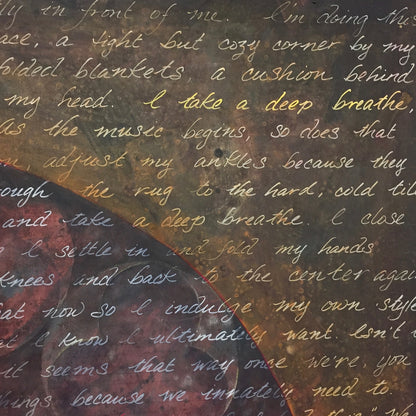 ly in front of me. I'm doing th
ace, a tight but cozy corner by my
folded blankets, a cushion behind
my head. I take a deep breathe
As the music begins, so does that
on adjust my ankles because they
rough the rug to the hard, cold til
and take a deep breathe. I close
I settle in and fold my hands
knees and back to the center again
at now so I indulge my own style
I know I ultimately want. Isn't i
it seems that way once we're you
things because we innately need to.